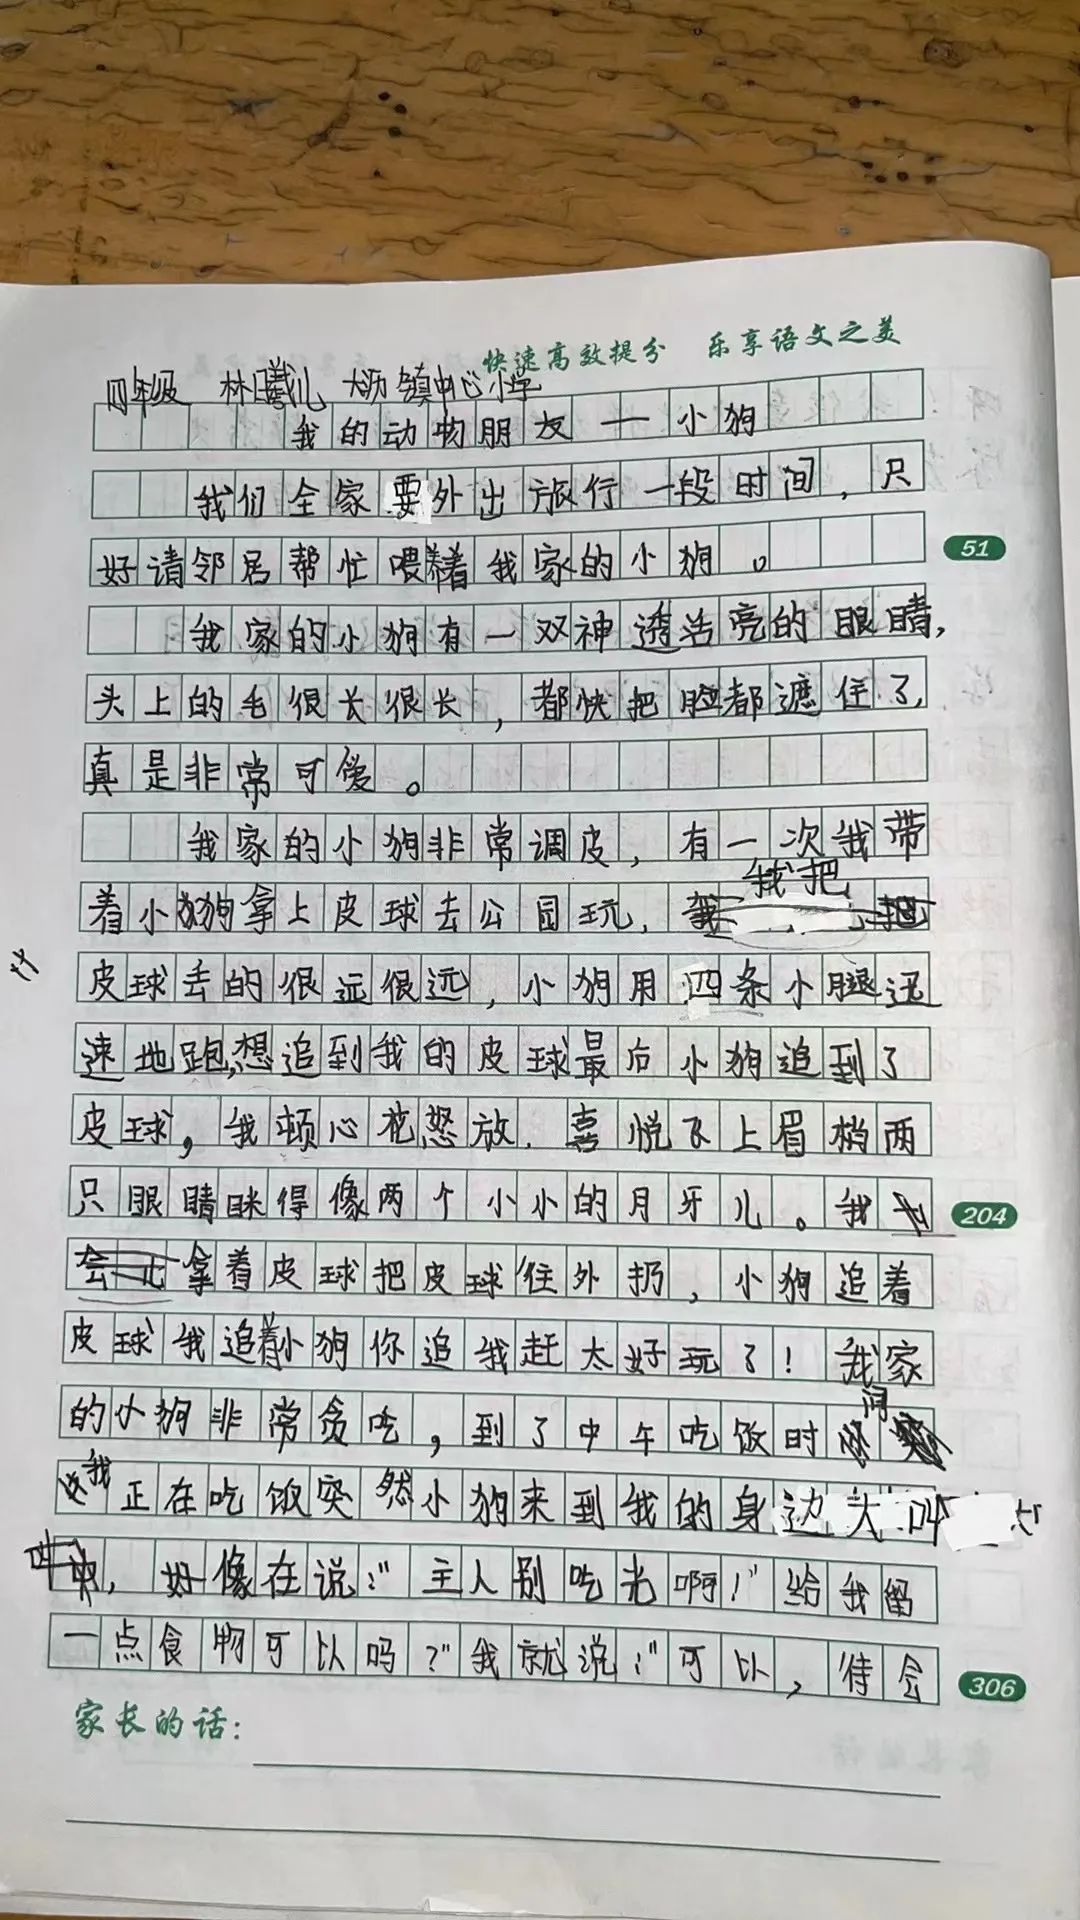 快速高效提分 乐享语文之美
四年级 林曦儿 大沥镇中心小学
我的动物朋友一小狗
我们全家要外出旅行一段时间，只
好请邻居帮忙喂养着我家的小狗。
51
我家的小狗有一双神透浩亮的眼睛，
头上的毛很长很长，都快把脸都遮住了，
真是非常可爱。
我家的小狗非常调皮，有一次我带
着小狗狗拿上皮球去公园玩，我把
皮球丢的很远很远，小狗用四条小腿迅
速地跑，想追到我的皮球最后小狗追到了
皮球，我顿心花怒放．喜悦飞上眉梢两
只眼睛眯得像两个小小的月牙儿。我
204
拿着皮球把皮球往外扔，小狗追着
皮球我追着小狗你追我赶太好玩了！我家
的小狗非常贪吃，到了中午吃饭时间
我正在吃饭突然小狗来到我的身边大叫大
叫，好像在说：“主人别吃光啊！”给我留
一点食物可以吗？”我就说：“可以，待会
306
家长的话：